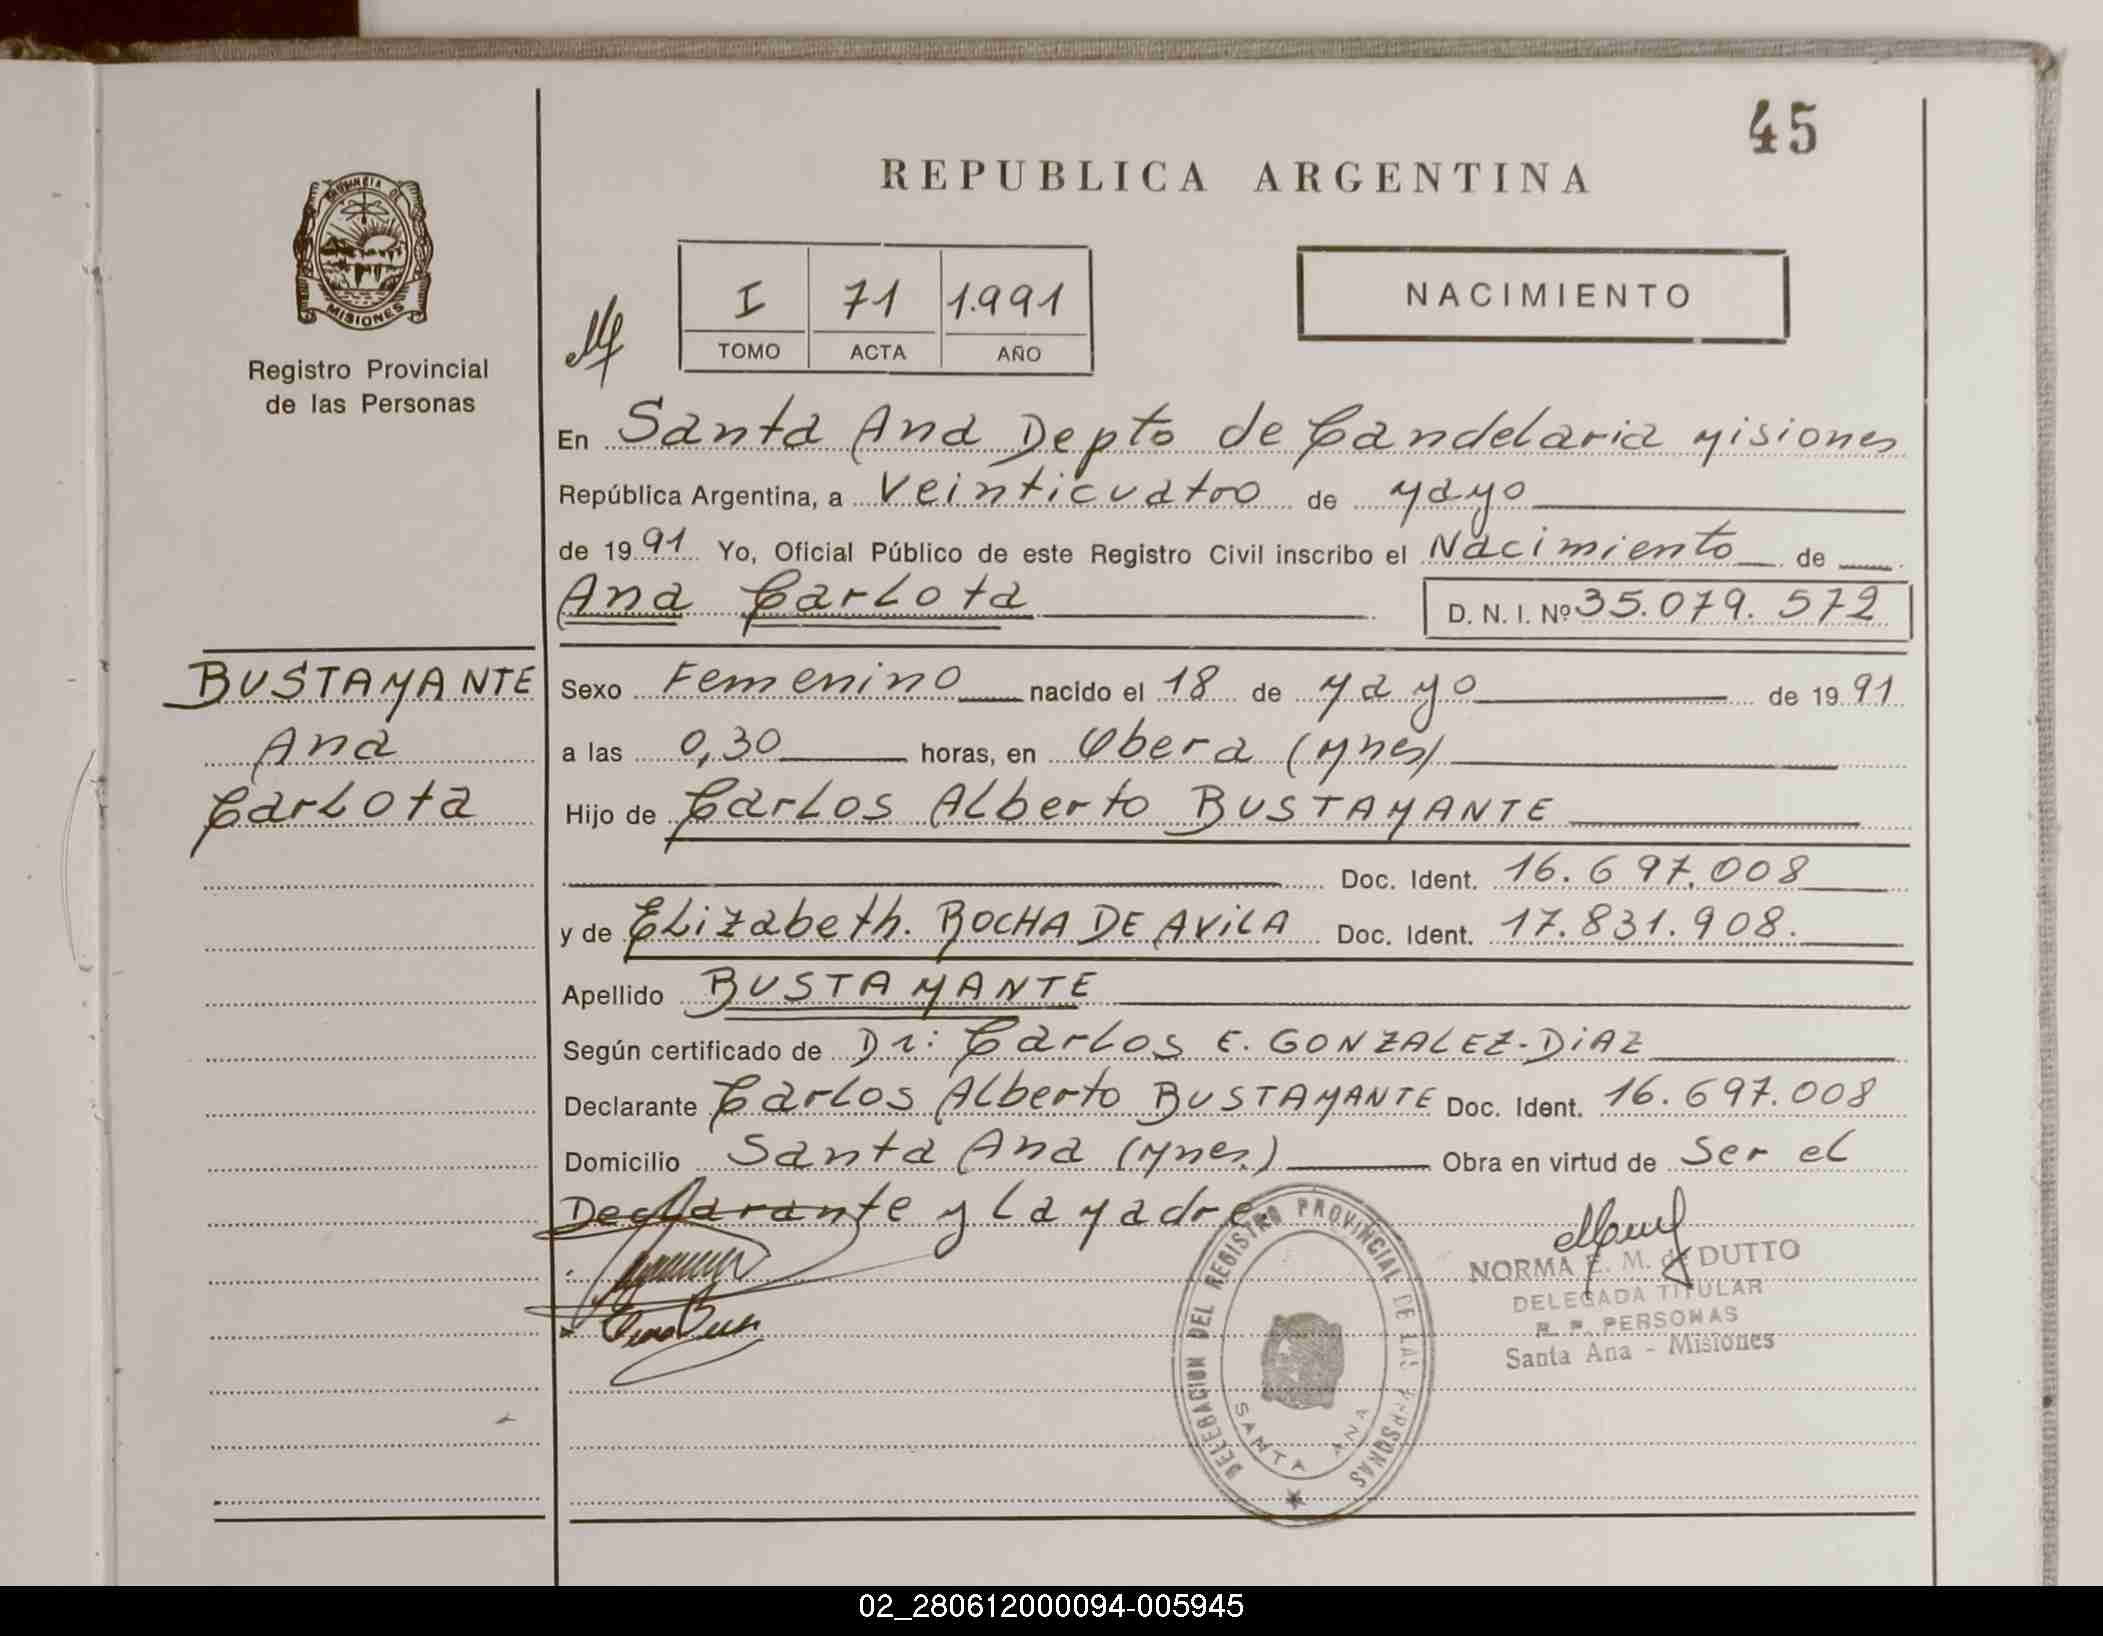 45
REPUBLICA ARGENTINA
PROVINCIA DE
MISIONES
Registro Provincial
de las Personas
I 71 1.991
TOMO ACTA AÑO
NACIMIENTO
En Santa Ana Depto de Candelaria Misiones
República Argentina, a Veinticuatro de Mayo
de 1991 Yo, Oficial Público de este Registro Civil inscribo el Nacimiento de
Ana Carlota D. N. I. Nº 35.079.572
BUSTAMANTE
Ana
Carlota
Sexo Femenino nacido el 18 de Mayo de 1991
a las 0,30 horas, en Obera (Mnes)
Hijo de Carlos Alberto BUSTAMANTE
Doc. Ident. 16.697.008
y de Elizabeth. ROCHA DE AVILA Doc. Ident. 17.831.908.
Apellido BUSTAMANTE
Según certificado de Dr: Carlos E. GONZALEZ-DiAZ
Declarante Carlos Alberto BUSTAMANTE Doc. Ident. 16.697.008
Domicilio Santa Ana (Mnes.) Obra en virtud de Ser el
Declarante y La Madre.
DELEGACION DEL REGISTRO PROVINCIAL DE LAS PERSONAS
SANTA ANA
NORMA E. M. de DUTTO
DELEGADA TITULAR
R. P. PERSONAS
Santa Ana - Misiones
02_280612000094-005945